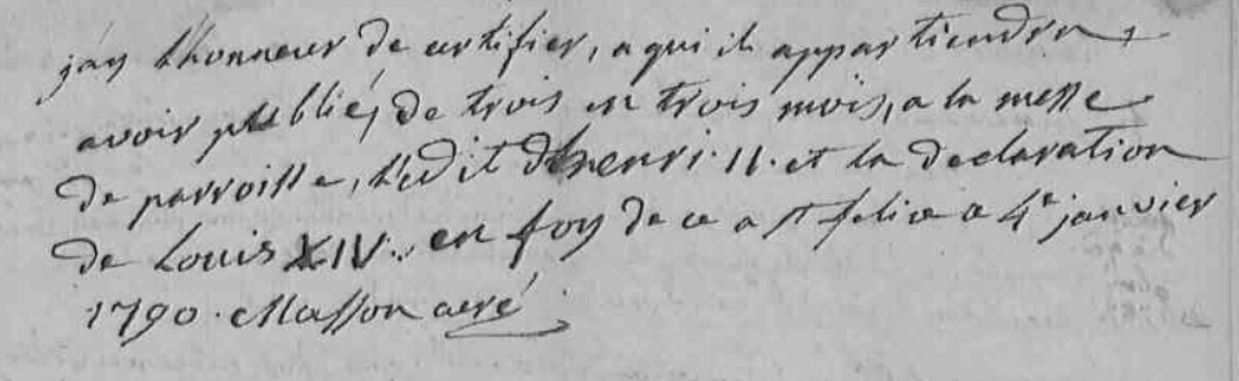 jay lhonneur de certifier, a qui il appartiendra,
avoir publié, de trois en trois mois, a la messe
de parroisse, l'edit dhenri II. et la declaration
de Louis XIV. en foy de ce a st felix ce 4e janvier
1790. Masson curé